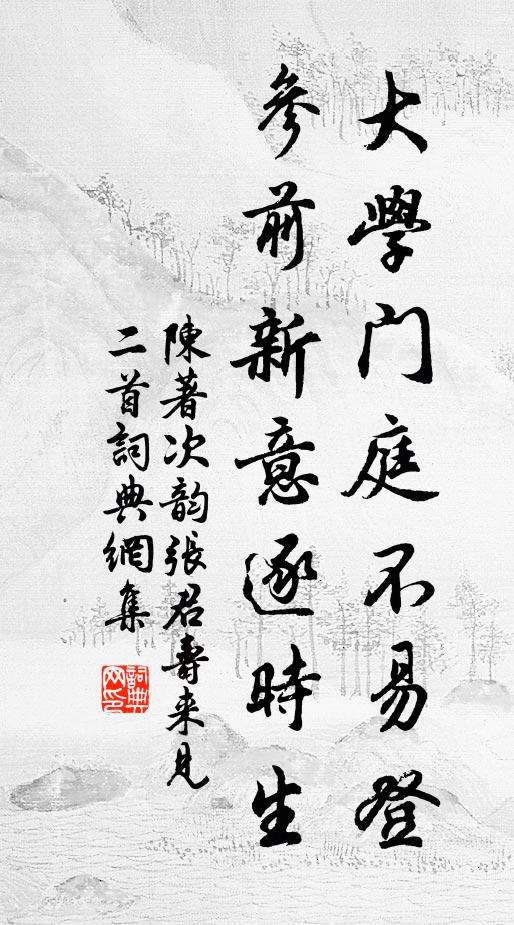 大學门庭不易登
參前新意逐時生
陳著次韵張君壽来見
二首詞典網集
詞典
网印